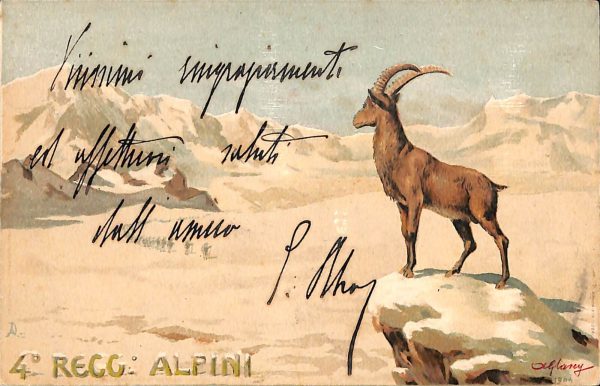 Vivissimi ringraziamenti
ed affettuosi saluti
dall'amico
4° REGG: ALPINI